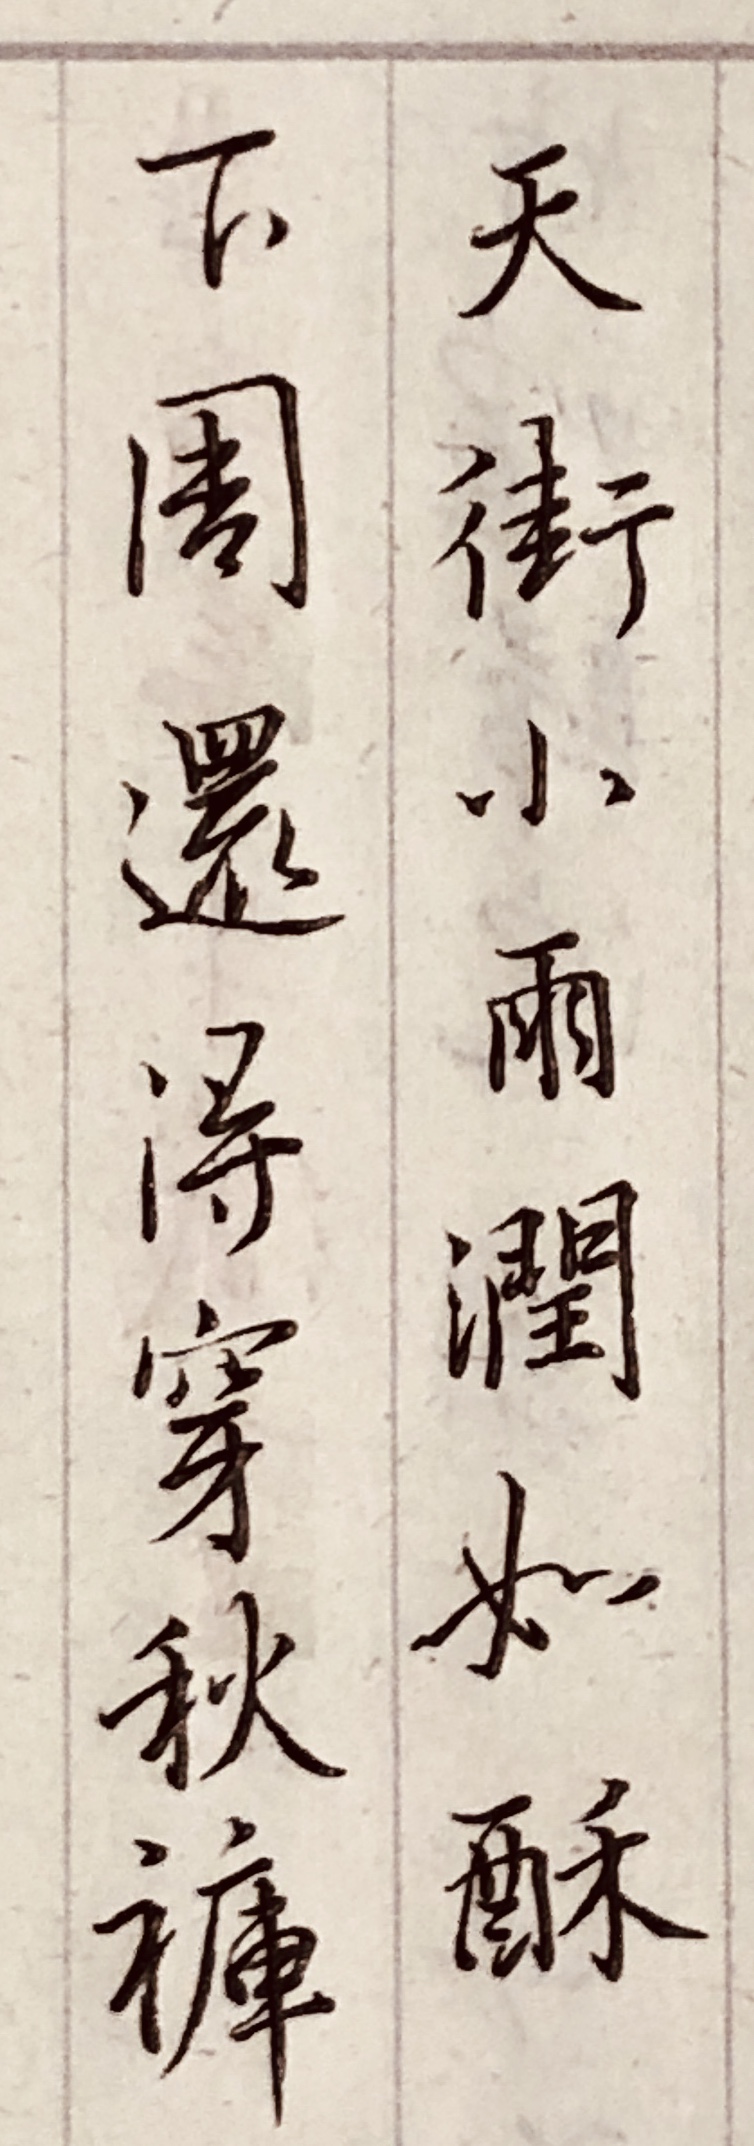 天街小雨潤如酥
下周還得穿秋褲